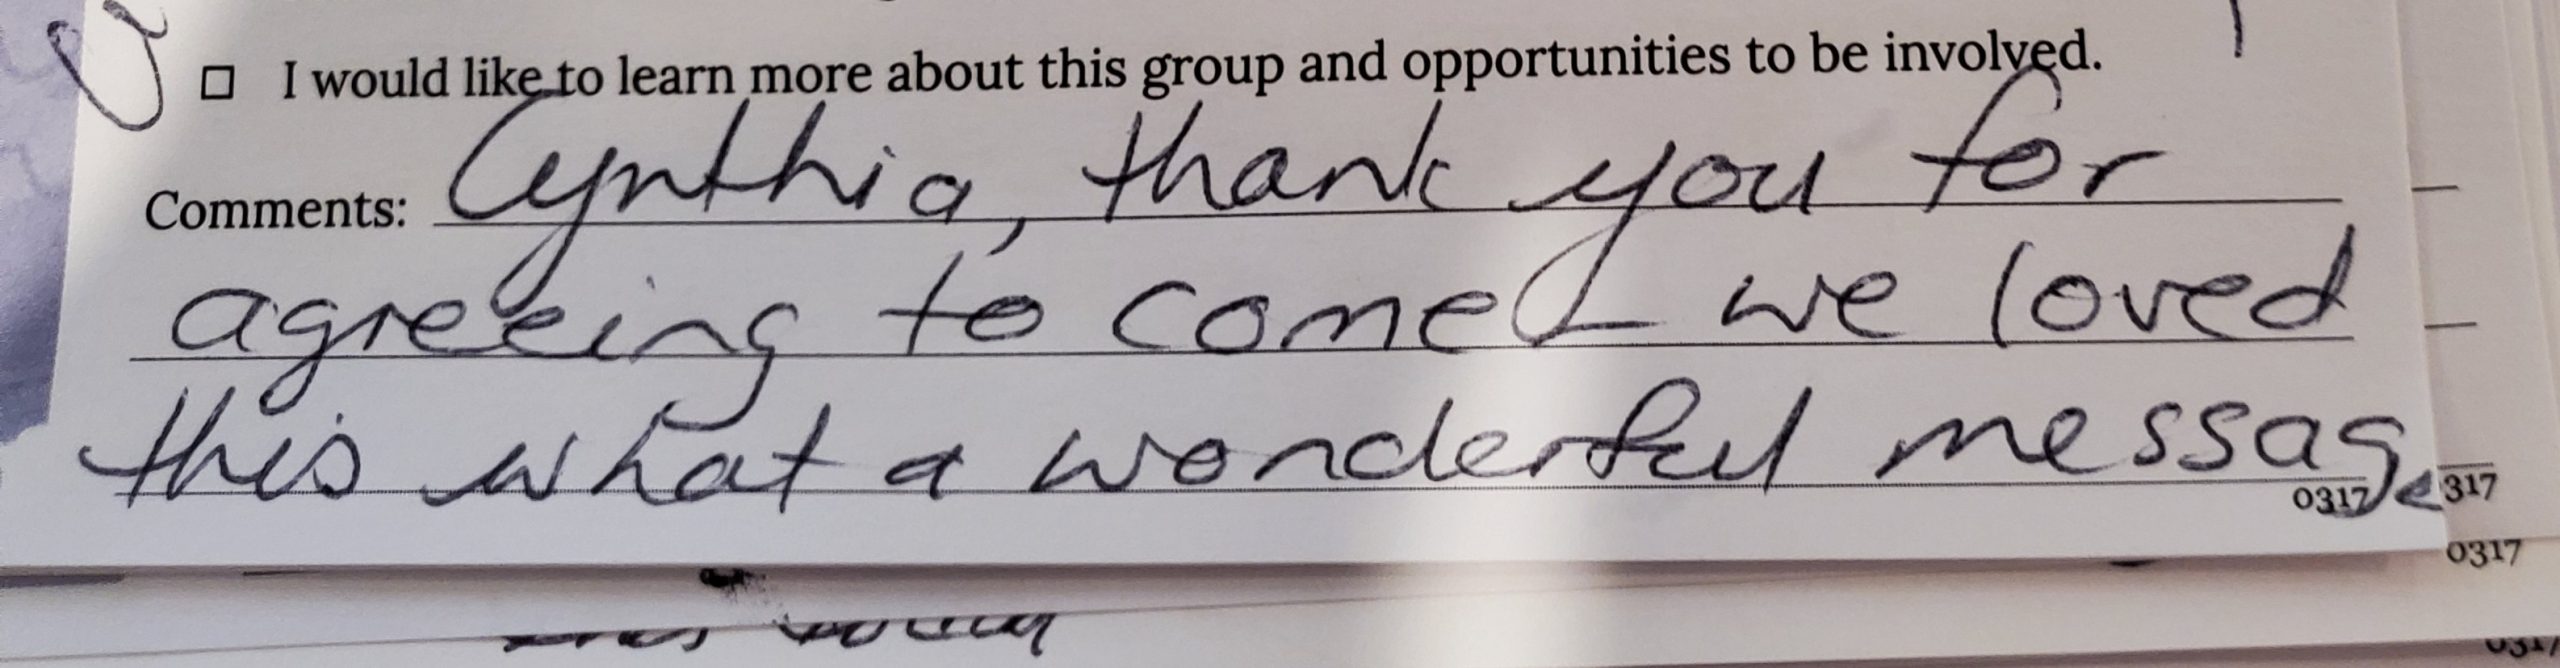 ☐ I would like to learn more about this group and opportunities to be involved.
Comments: Cynthia, thank you for
agreeing to come we loved
this what a wonderful message
0317
317
0317